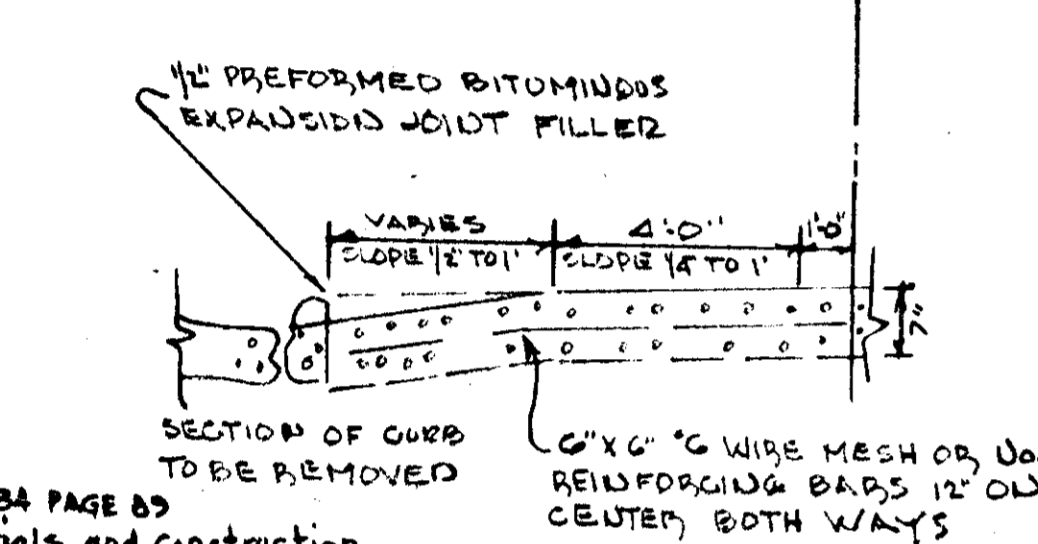 1/2" PREFORMED BITUMINOUS
EXPANSION JOINT FILLER
VARIES
SLOPE 1/2" TO 1'
4'-0"
SLOPE 1/4 TO 1'
1'-0"
7"
SECTION OF CURB
TO BE REMOVED
6" X 6" #6 WIRE MESH OR NO.
REINFORCING BARS 12" ON
CENTER BOTH WAYS
PAGE 89
and construction